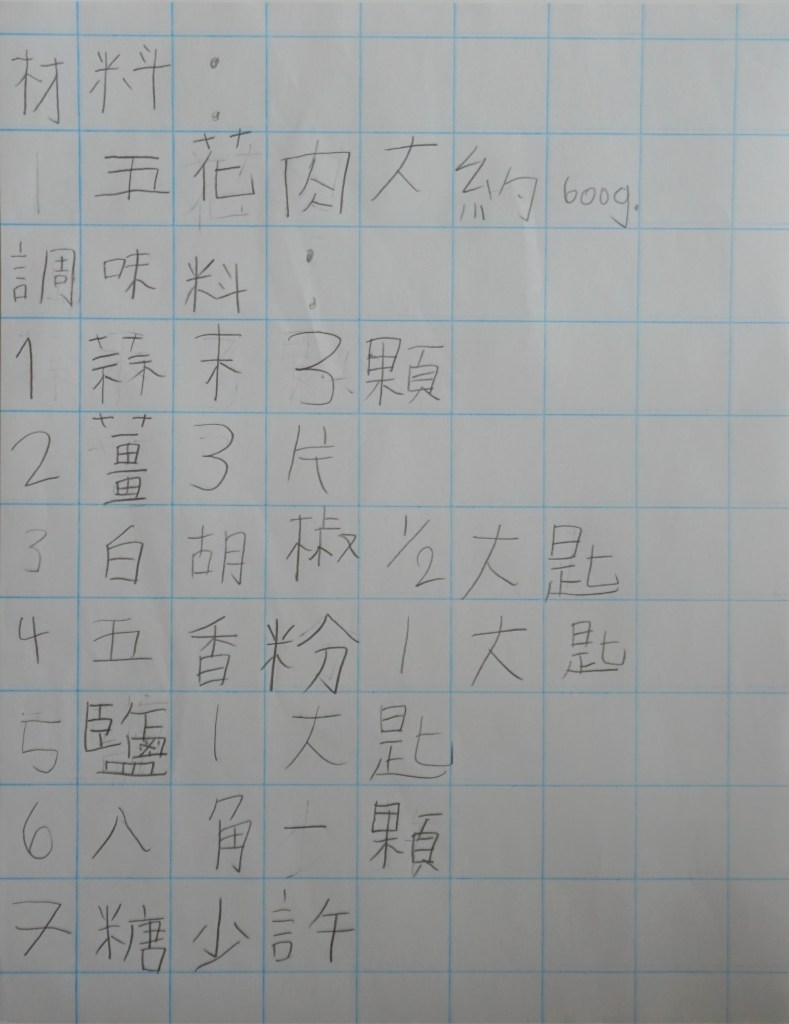 材料：
1 五花肉大約600g.
調味料：
1 蒜末3顆
2 薑3片
3 白胡椒1/2大匙
4 五香粉1大匙
5 鹽1大匙
6 八角一顆
7 糖少許